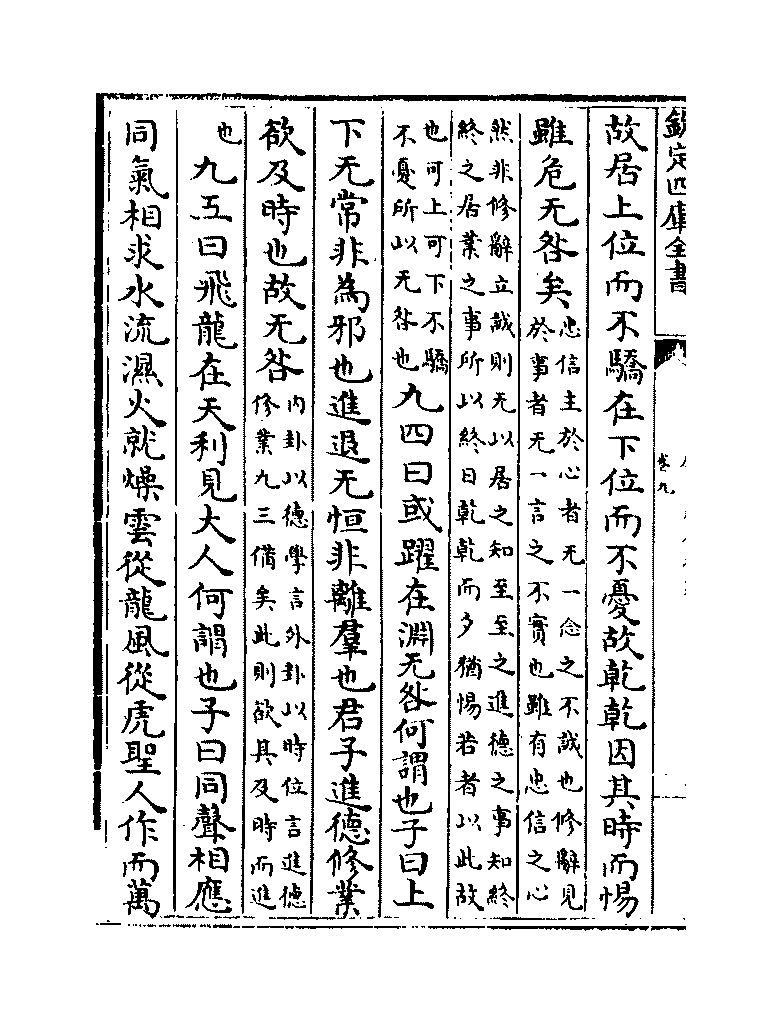 欽定四庫全書
卷九
故居上位而不驕在下位而不憂故乾乾因其時而惕
雖危无咎矣忠信主於心者无一念之不誠也修辭見
於事者无一言之不實也雖有忠信之心
然非修辭立誠則无以居之知至至之進德之事知終
終之居業之事所以終日乾乾而夕猶惕若者以此故
也可上可下不驕
不憂所以无咎也九四曰或躍在淵无咎何謂也子曰上
下无常非為邪也進退无恒非離羣也君子進德修業
欲及時也故无咎内卦以德學言外卦以時位言進德
修業九三備矣此則欲其及時而進
也九五曰飛龍在天利見大人何謂也子曰同聲相應
同氣相求水流濕火就燥雲從龍風從虎聖人作而萬